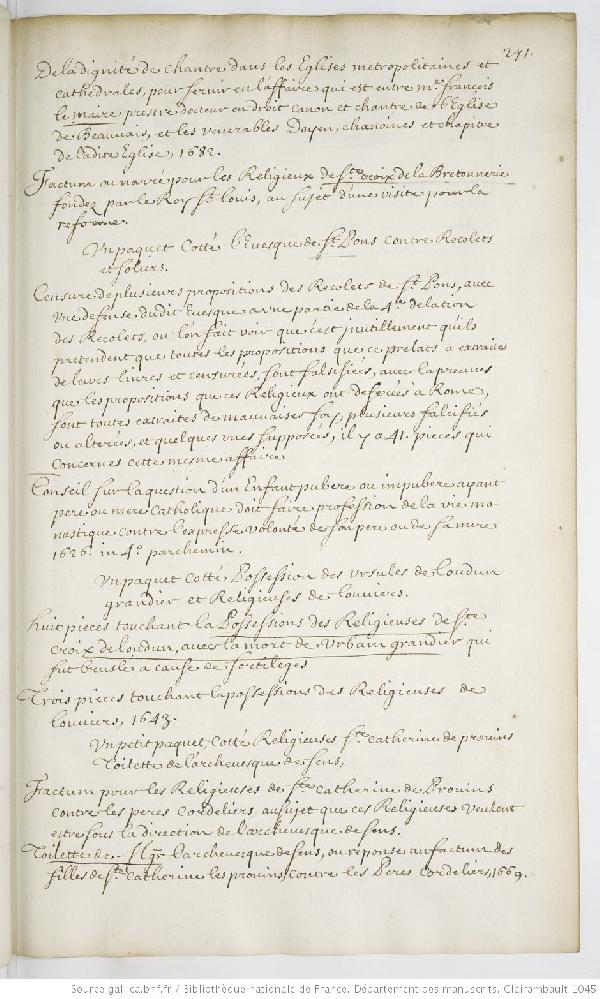 241.
De la dignité de Chantre dans les Eglises metropolitaines et
cathedrales, pour servir en l'affaire qui est entre me. françois
le maire prestre docteur en droit canon et chantre de l'Eglise
de Beauuais, et les venerables Doyen, chanoines et chapitre
de ladite Eglise, 1682.
Factum ou narré pour les Religieux de Ste. croix de la Bretonnerie
fondez par le Roy St. louis, au sujet d'une visite pour la
reforme.
Un paquet Cotté l'Euesque de St. Pons contre Recolets
et soliers.
Censure de plusieurs propositions des Recolets de St. Pons, auec
une defense dudit Euesque a une partie de la 4e. delation
des Recolets, ou l'on fait voir que c'est jnutillement qu'ils
pretendent que toutes les propositions que ce prelats a extraites
de leurs liures et censurées, sont falsifiées, auec la preuues
que les propositions que ces Religieux ont deferées a Rome,
sont toutes extraites de mauuaises foy, plusieurs falcifiés
ou alterées, et quelques unes supposées, il y a 41. pieces qui
concernes cette mesme affaire.
Conseil sur la question d'un Enfant pubere ou impubere ayant
pere ou mere Catholique doit faire profession de la vie mo-
nastique contre l'expresse volonté de son pere ou de sa mere
1626. in 4o. parchemin.
Un paquet cotté Possession des ursules de loudun
grandier et Religieuses de louuiers.
huit pieces touchant la Possessions des Religieuses de Ste.
croix de loudun, auec la mort de Urbain grandier qui
fut bruslé a cause de sortileges
Trois pieces touchant la possessions des Religieuses de
louuiers, 1643.
Un petit paquet, Cotté Religieuses Ste. Catherine de prouins
Toilette de l'archeuesque de sens,
Factum pour les Religieuses de Ste. Catherine de Prouins
contre les peres Cordeliers, au sujet que ces Religieuses veulent
estre sous la direction de l'archeuesque de sens.
Toilette de Mgr. l'archeuesque de sens, ou reponse au factum des
filles de Ste. Catherine les prouins, contre les Peres Cordeliers, 1669.
Source gallica.bnf.fr / Bibliothèque nationale de France. Département des manuscrits. Clairambault 1045